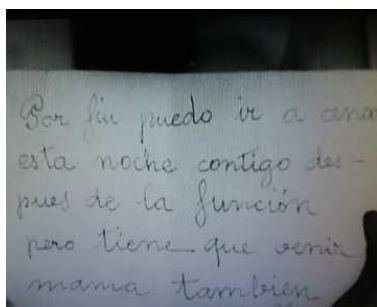 Por fin puedo ir a cenar
esta noche contigo des-
pues de la función
pero tiene que venir
mama tambien